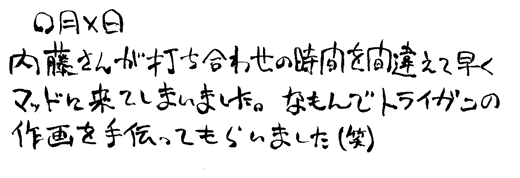 〇月×日
内藤さんが打ち合わせの時間を間違えて早く
マッドに来てしまいました。なもんでトライガンの
作画を手伝ってもらいました(笑)